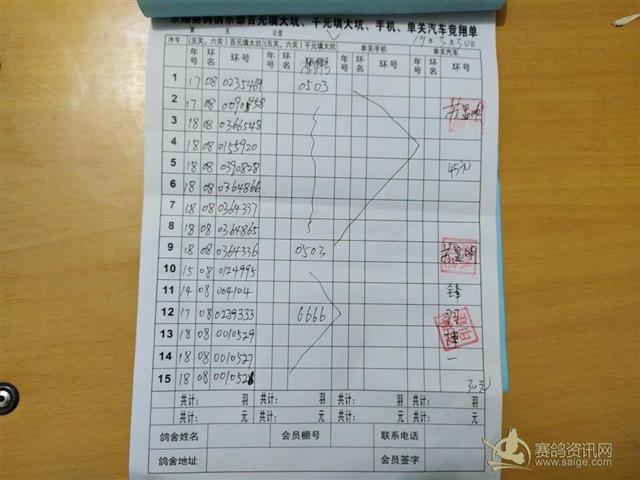 赛鸽俱乐部百元填大坑、千元填大坑、手机、单关汽车竞翔单
第 关 公里 19年3月30日
序号 (五关、六关)百元填大坑 (五关、六关)千元填大坑 单关手机 单关汽车
年号 环名 环号 年号 环名 年号 环名 环号 年号 环名 环号
1 17 08 0235469 0503
2 17 08
3 18 08 0366548
4 18 08 0155920
5 18 08 0390828 45元
6 18 08 0364866
7 18 08 0364337
8 18 08 0364865
9 18 08 0364336 0503
10 15 08 0124995
11 14 08 004104 锋
12 17 08 0239333 6666
13 18 08 0010529
14 18 08 0010527 一
15 18 08 30元
共计: 羽 共计: 羽 共计: 羽 共计: 羽
共计: 元 共计: 元 共计: 元 共计: 元
鸽舍姓名 会员棚号 联系电话
鸽舍地址 会员签字
赛鸽资讯网
www.saige.com